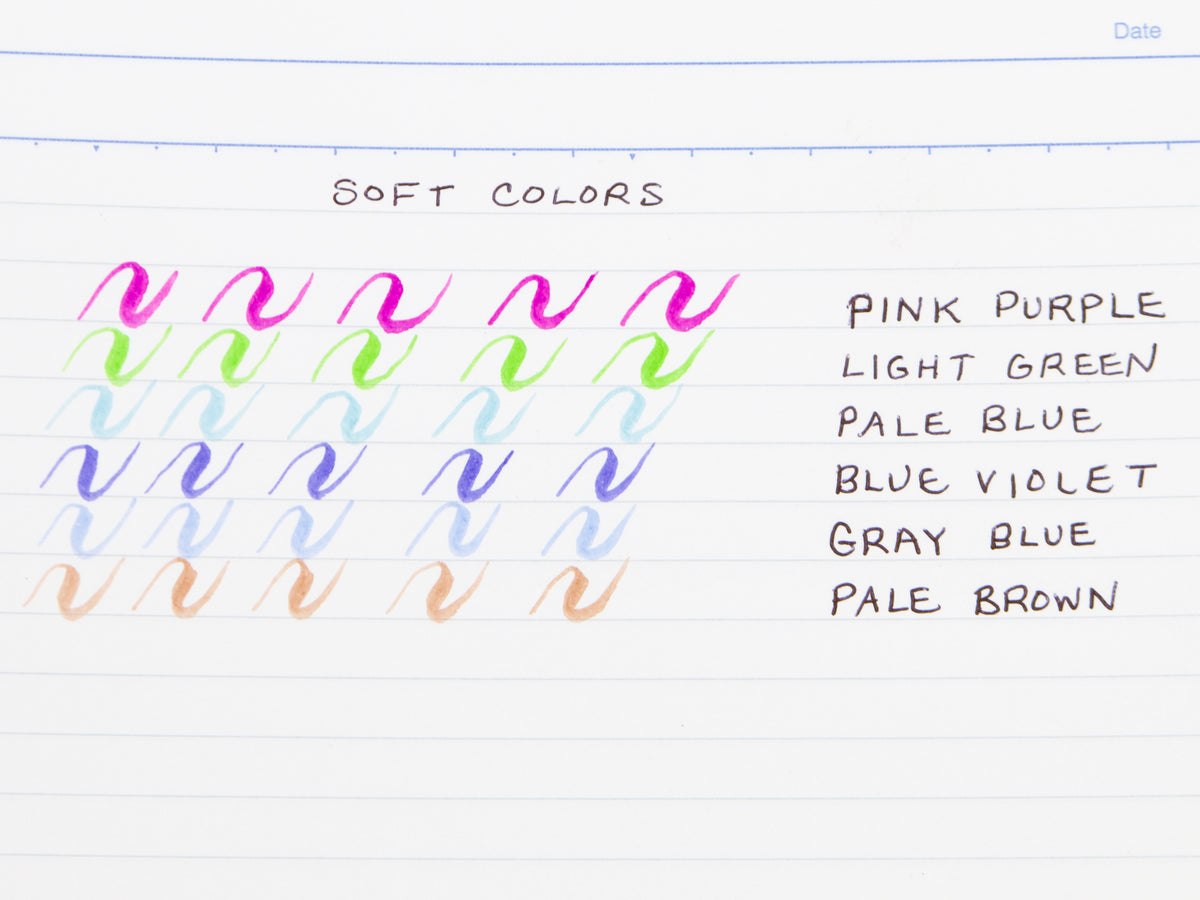 Date
SOFT COLORS
PINK PURPLE
LIGHT GREEN
PALE BLUE
BLUE VIOLET
GRAY BLUE
PALE BROWN